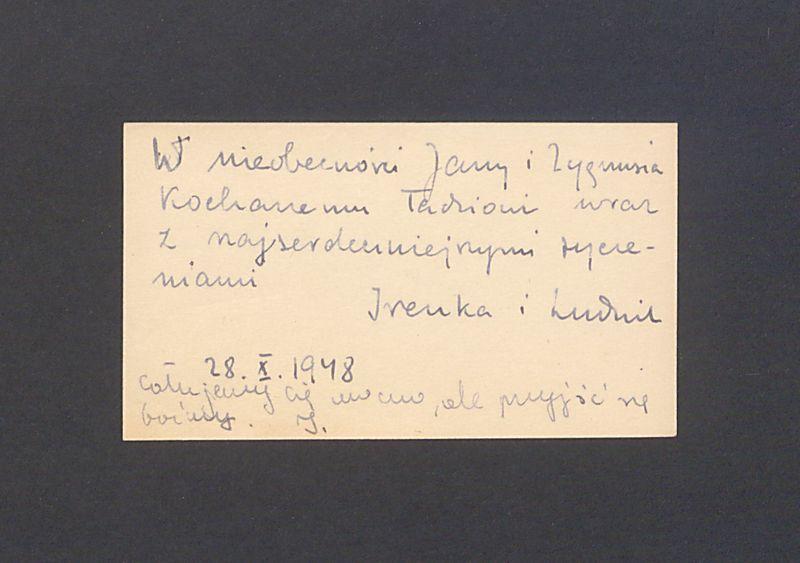 W nieobecności Jany i Zygmusia
Kochanemu Tadziowi wraz
z najserdeczniejszymi życze-
niami
Irenka i Ludwik
28. X. 1948
całujemy cię mocno, ale przyjść się
boimy. I.